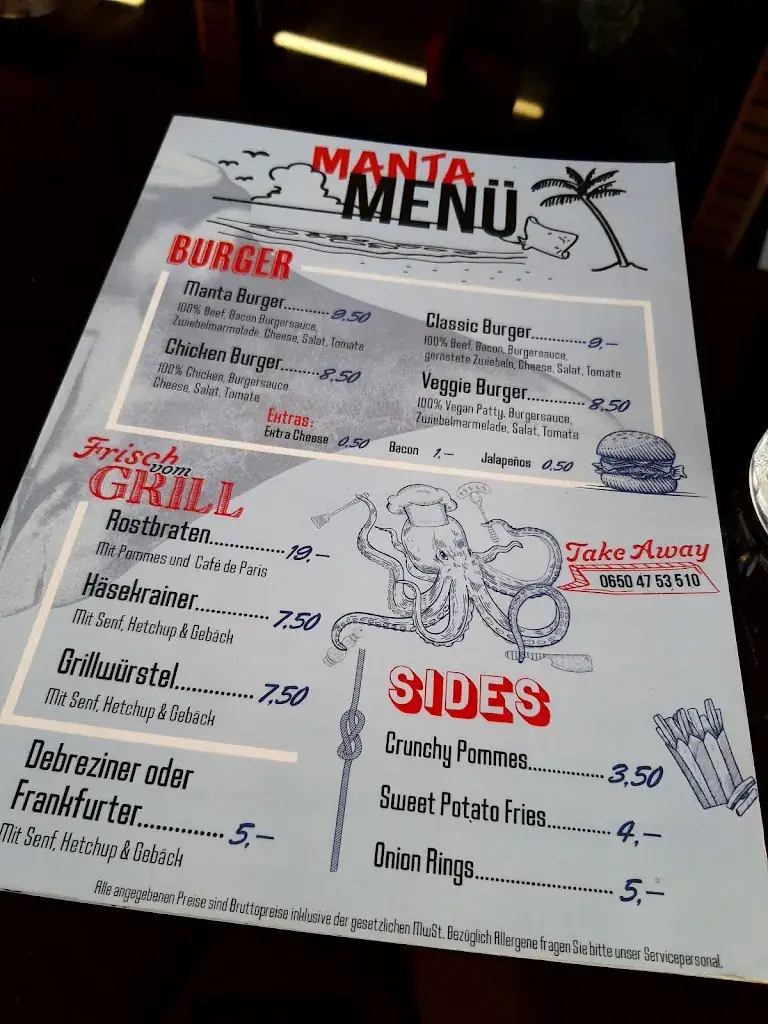 MANTA
MENÜ
BURGER
Manta Burger..........9,50
100% Beef, Bacon Burgersauce,
Zwiebelmarmelade, Cheese, Salat, Tomate
Chicken Burger.........8,50
100% Chicken, Burgersauce
Cheese, Salat, Tomate
Classic Burger............9,–
100% Beef, Bacon, Burgersauce,
geröstete Zwiebeln, Cheese, Salat, Tomate
Veggie Burger............8,50
100% Vegan Patty, Burgersauce,
Zwiebelmarmelade, Salat, Tomate
Extras:
Extra Cheese 0,50 Bacon 1,– Jalapeños 0,50
Frisch
vom
GRILL
Rostbraten...............19,–
Mit Pommes und Café de Paris
Käsekrainer...............7,50
Mit Senf, Ketchup & Gebäck
Grillwürstel...............7,50
Mit Senf, Ketchup & Gebäck
Debreziner oder
Frankfurter...............5,–
Mit Senf, Ketchup & Gebäck
Take Away
0650 47 53 510
SIDES
Crunchy Pommes...............3,50
Sweet Potato Fries............4,–
Onion Rings..........................5,–
Alle angegebenen Preise sind Bruttopreise inklusive der gesetzlichen MwSt. Bezüglich Allergene fragen Sie bitte unser Servicepersonal.